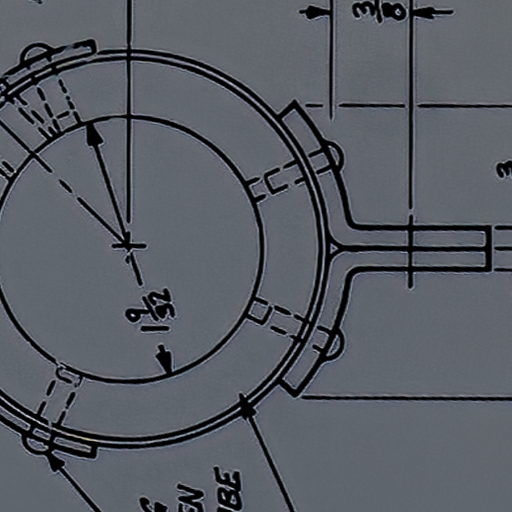 3/8
3
1 9/32
EN
UBE